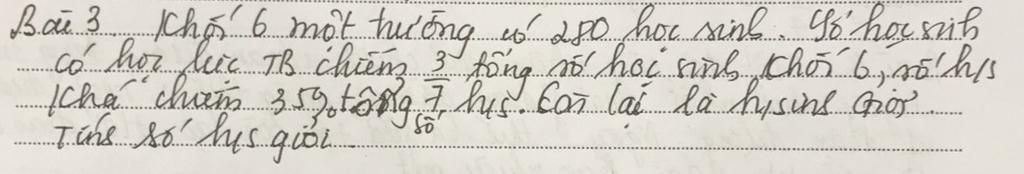 Bài 3. Khối 6 một trường có 280 học sinh. Số học sinh
có học lực TB chiếm 3/7 tổng số học sinh khối 6, số h/s
Khá chiếm 35% tổng số h/s. Còn lại là h/sinh Giỏi.
Tính số h/s giỏi.